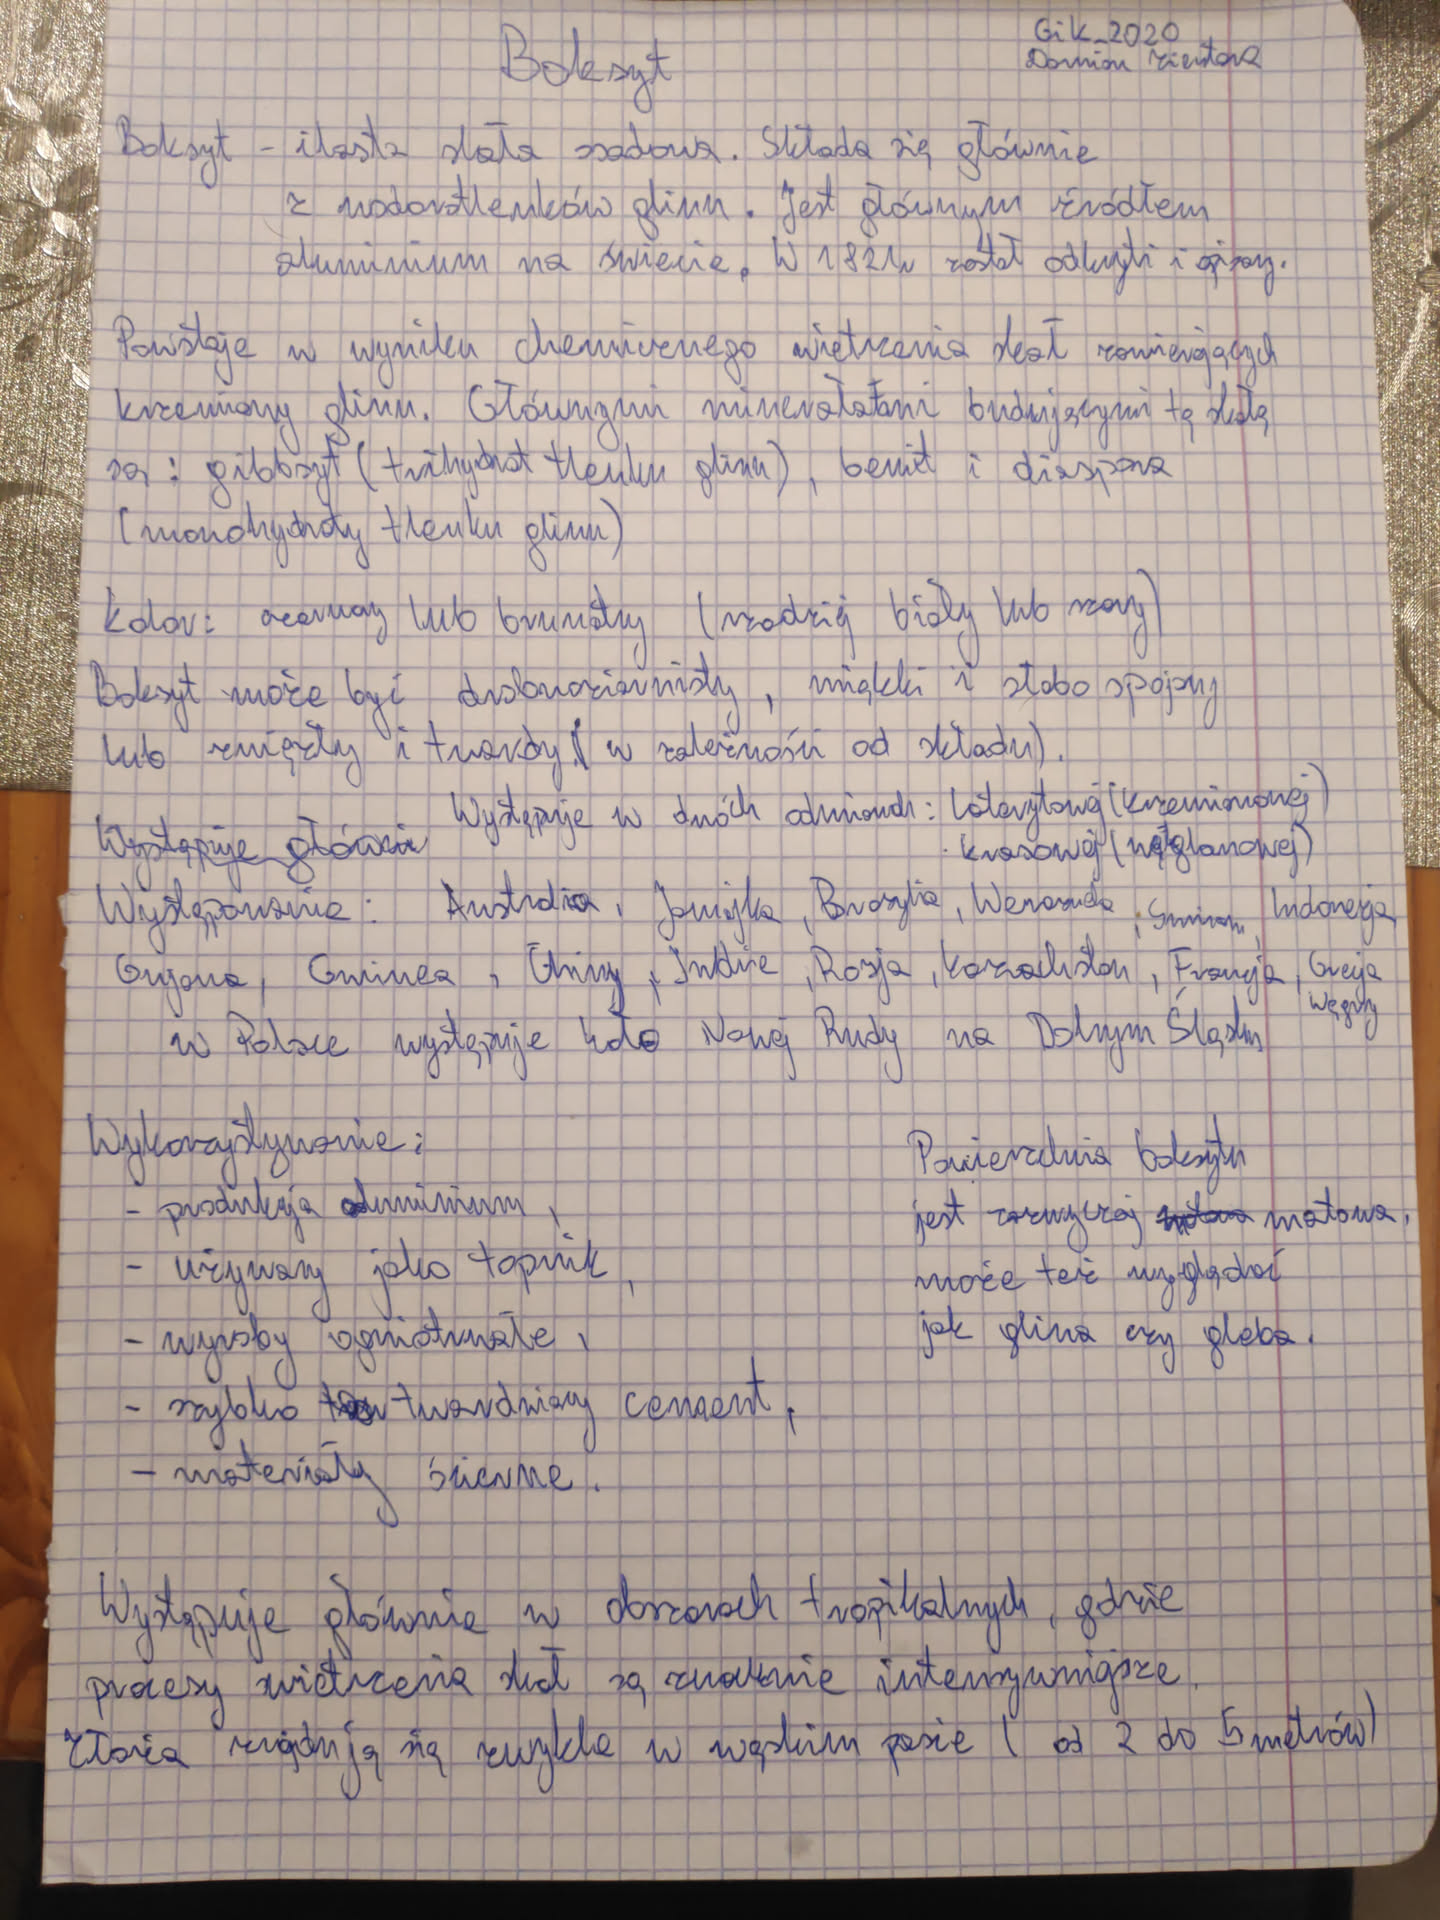 Gik_2020
Boksyt
Boksyt - ilasta skała osadowa. Składa się głównie
z wodorotlenków glinu. Jest głównym źródłem
aluminium na świecie. W 1821r został odkryti i opisany.
Powstaje w wyniku chemicznego wietrzenia skał zawierających
krzemiany glinu. Głównymi minerałami budującymi tą skałą
są: gibbsyt (trihydrat tlenku glinu), bemit i diaspora
(monohydraty tlenku glinu)
Kolor: czerwony lub brunatny (rzadziej biały lub szary)
Boksyt może być drobnoziarnisty, miękki i słabo spójny
lub zwięzły i twardy (w zależności od składu).
Występuje w dwóch odmianach: laterytowej (krzemianowej)
Występuje główni
krasowej (węglanowej)
Występowanie: Australia, Jamajka, Brazylia, Wenezuela, Surinam, Indonezja
Gujana, Gwinea, Chiny, Indie, Rosja, Kazachstan, Francja, Grecja
Węgry
w Polsce występuje koło Nowej Rudy na Dolnym Śląsku
Wykorzystywanie:
- produkcja aluminium,
- używany jako topnik,
- wyroby ogniotrwałe,
- szybko twardniejący cement,
- materiały ścierne.
Powierzchnia boksytu
jest zazwyczaj matowa,
może też wyglądać
jak glina czy gleba.
Występuje głównie w obszarach tropikalnych, gdzie
procesy wietrzenia skał są znacznie intensywniejsze.
Złoża znajdują się zwykle w wąskim pasie (od 2 do 5 metrów)